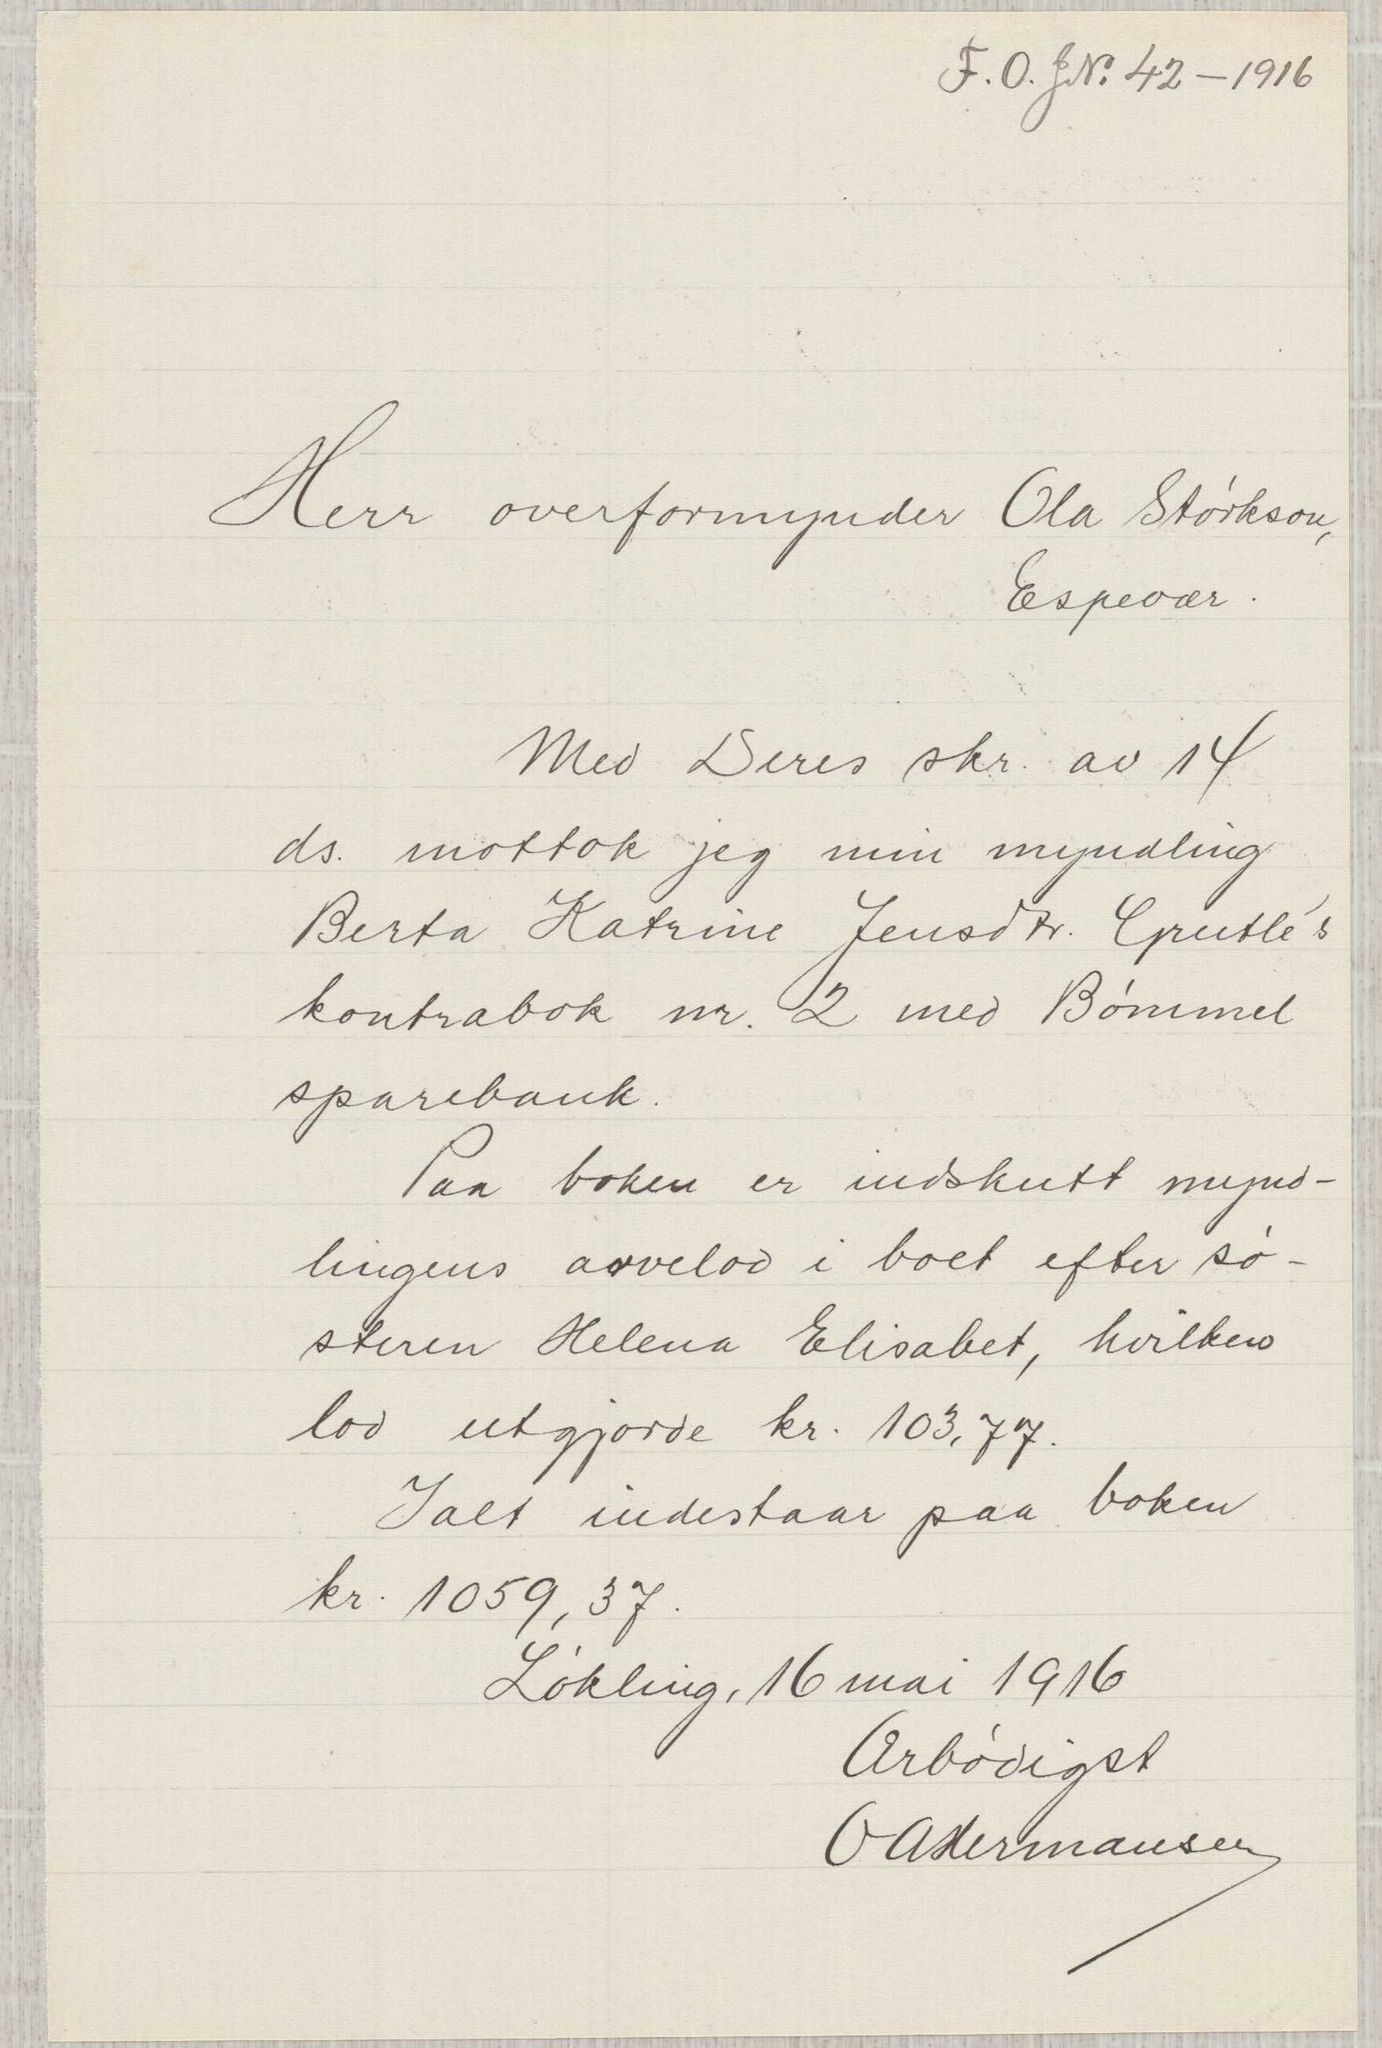 F. O. J.Nº 42 – 1916
Herr overformynder Ola Størkson,
Espevær.
Med Deres skr. av 14
ds. mottok jeg min myndling
Berta Katrine Jensdtr. Grutle's
kontrabok nr. 2 med Bømmel
sparebank.
Paa boken er indskutt mynd-
lingens arvelod i boet efter sø-
steren Helena Elisabet, hvilken
lod utgjorde kr. 103,77.
Ialt indestaar paa boken
kr. 1059,37.
Løkling, 16 mai 1916
Ærbødigst
O A Hermansen